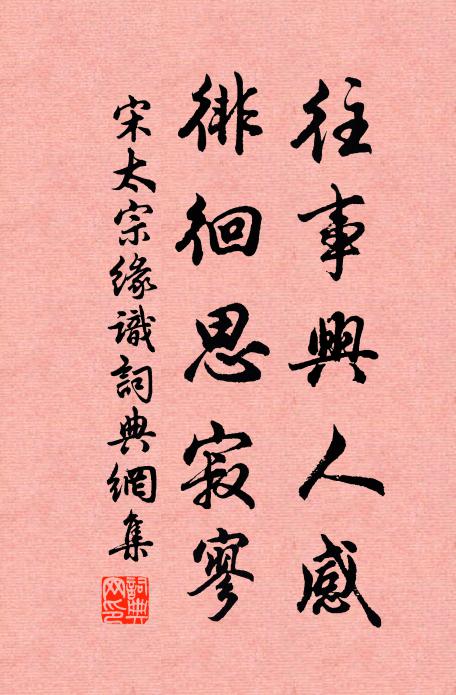 往事興人感
徘徊思寂寥
宋太宗緣識詞典網集
詞典網印